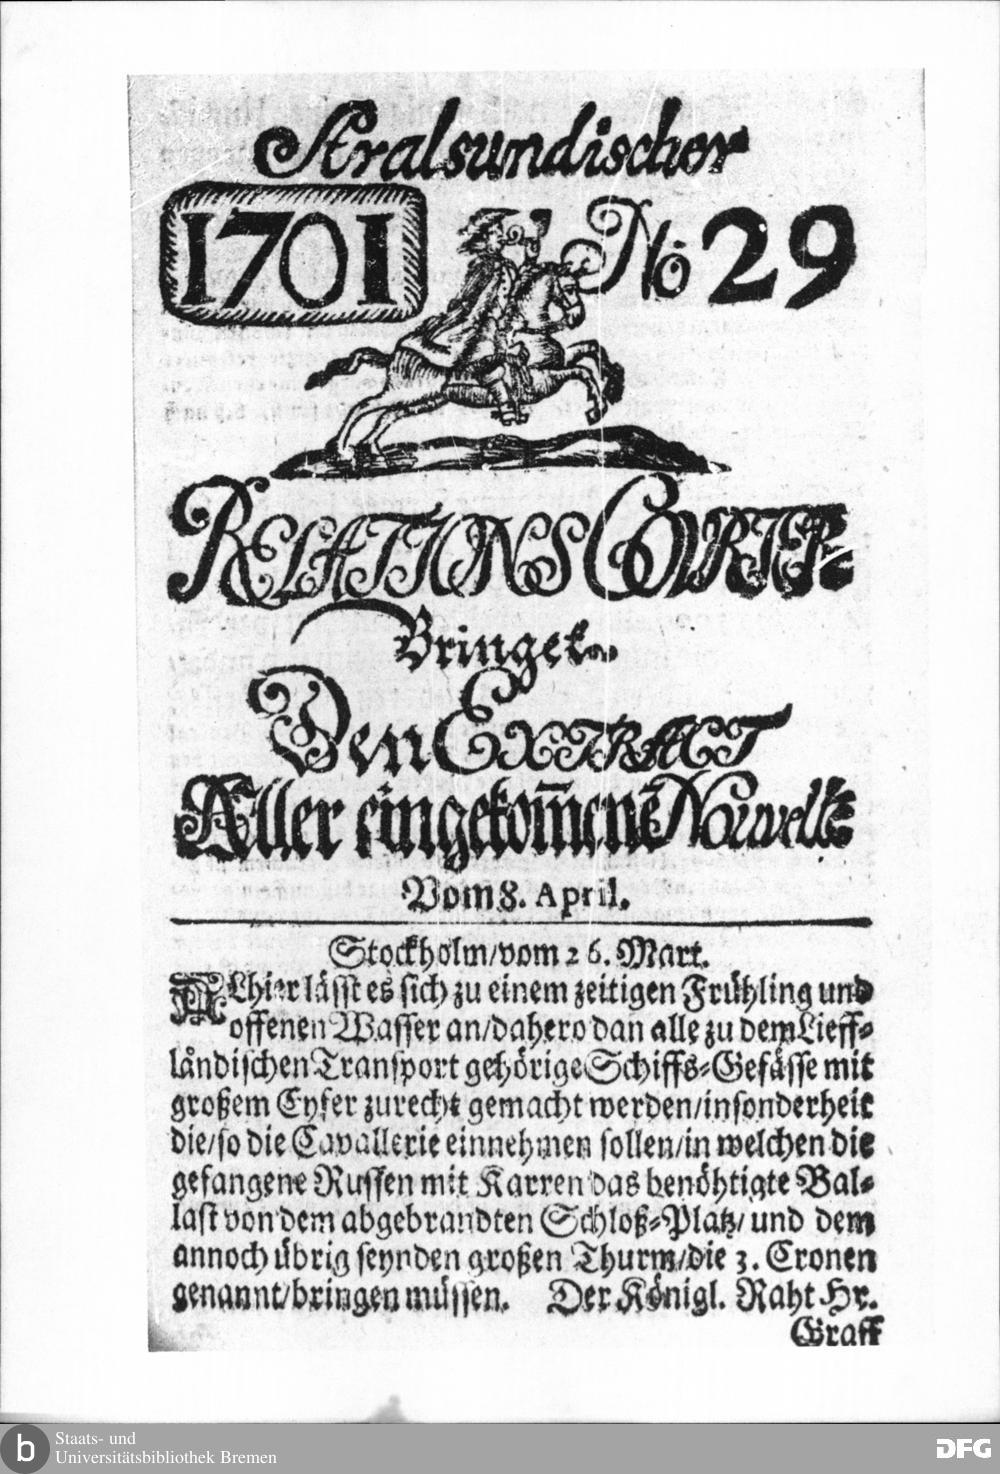 Stralsundischer
1701
No 29
RELATIONS COURIER
Bringet
Den EXTRACT
Aller eingekom̃enẽ Nouvellẽ
Vom 8. April.
Stockholm/vom 26. Mart.
ALhier lässt es sich zu einem zeitigen Frühling und
offenen Wasser an/dahero dan alle zu dem Lieff-
ländischen Transport gehörige Schiffs-Gefässe mit
großem Eyfer zurecht gemacht werden/insonderheit
die/so die Cavallerie einnehmen sollen/in welchen die
gefangene Russen mit Karren das benöhtigte Bal-
last von dem abgebrandten Schloß-Platz/und dem
annoch übrig seynden großen Thurm/die 3. Cronen
genannt/bringen müssen. Der Königl. Raht Hr.
Graff
b
Staats- und
Universitätsbibliothek Bremen
DFG